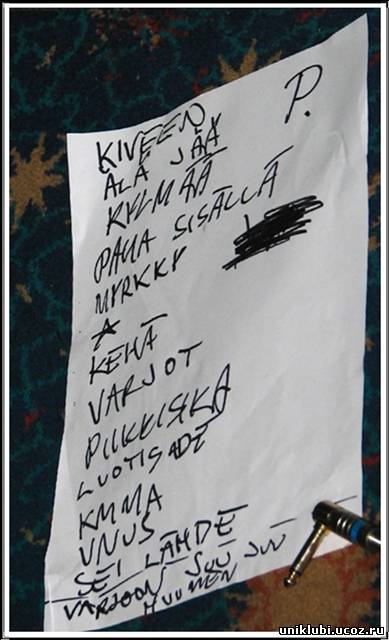 P.
KIVEEN
ÄLÄ JÄÄ
KYLMÄÄ
PAHA SISÄLLÄ
MYRKKY
KEHÄ
VARJOT
PIIKKISIKA
LUOTISADE
KMMA
UNUS
SEI LÄHDE
VARJOON SUU SUU
HUUMEN
uniklubi.ucoz.ru